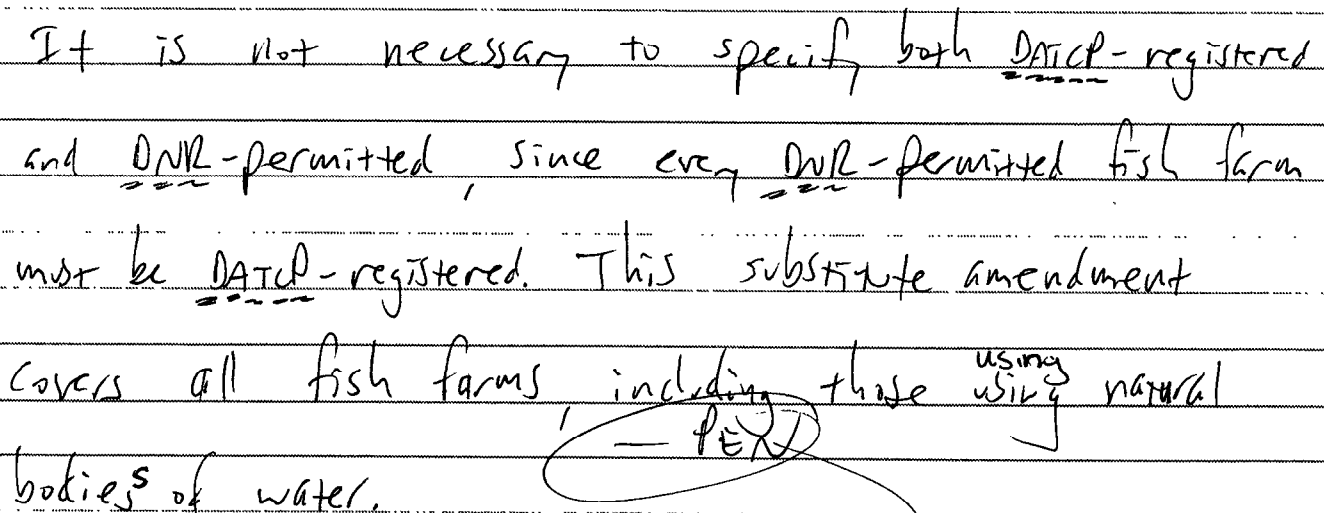 It is not necessary to specify both DATCP-registered
and DNR-permitted, since every DNR-permitted fish farm
must be DATCP-registered. This substitute amendment
covers all fish farms, including those using using natural
— PEN
bodies of water.